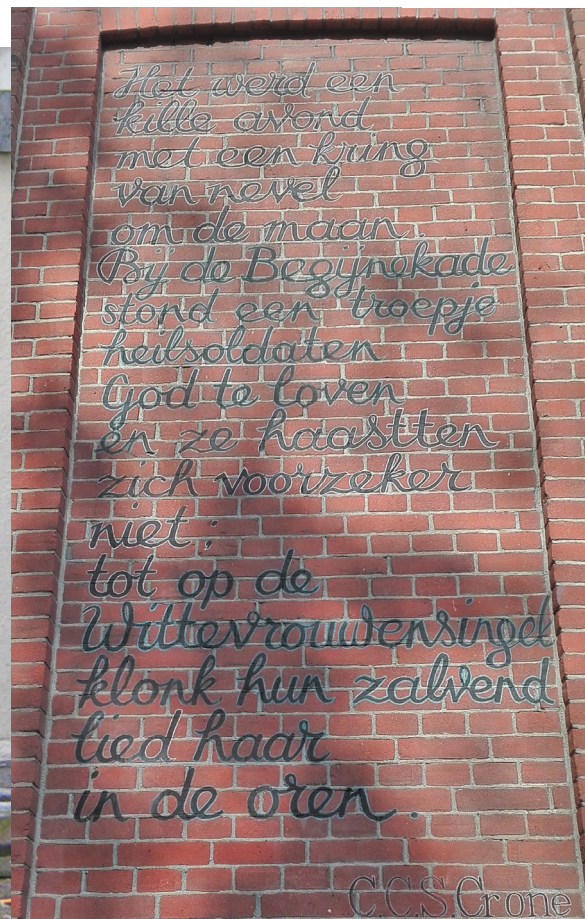 Het werd een
kille avond
met een kring
van nevel
om de maan.
Bij de Begijnekade
stond een troepje
heilsoldaten
God te loven
en ze haastten
zich voorzeker
niet;
tot op de
Wittevrouwensingel
klonk hun zalvend
lied haar
in de oren.
C.C.S. Crone